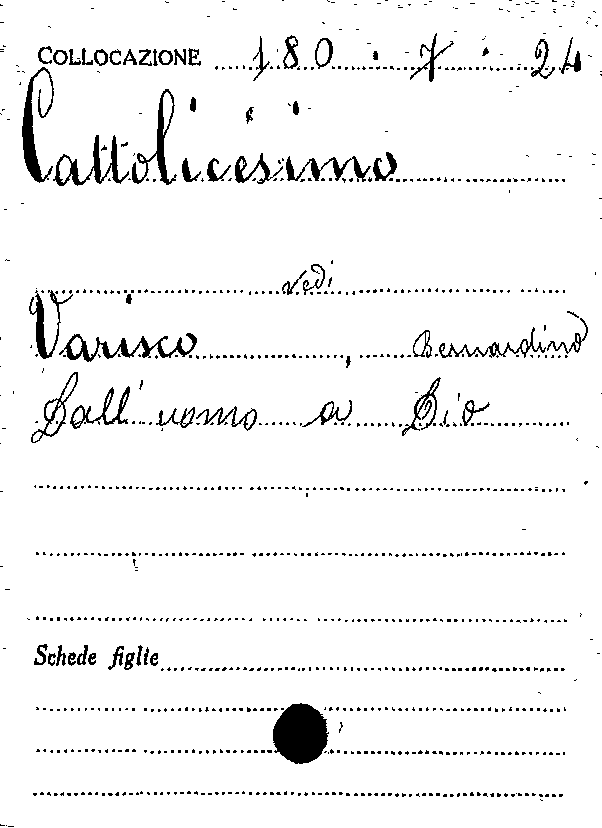 COLLOCAZIONE 180 . 7 . 24
Cattolicesimo
vedi
Varisco, Bernardino
Dall' uomo a Dio
Schede figlie